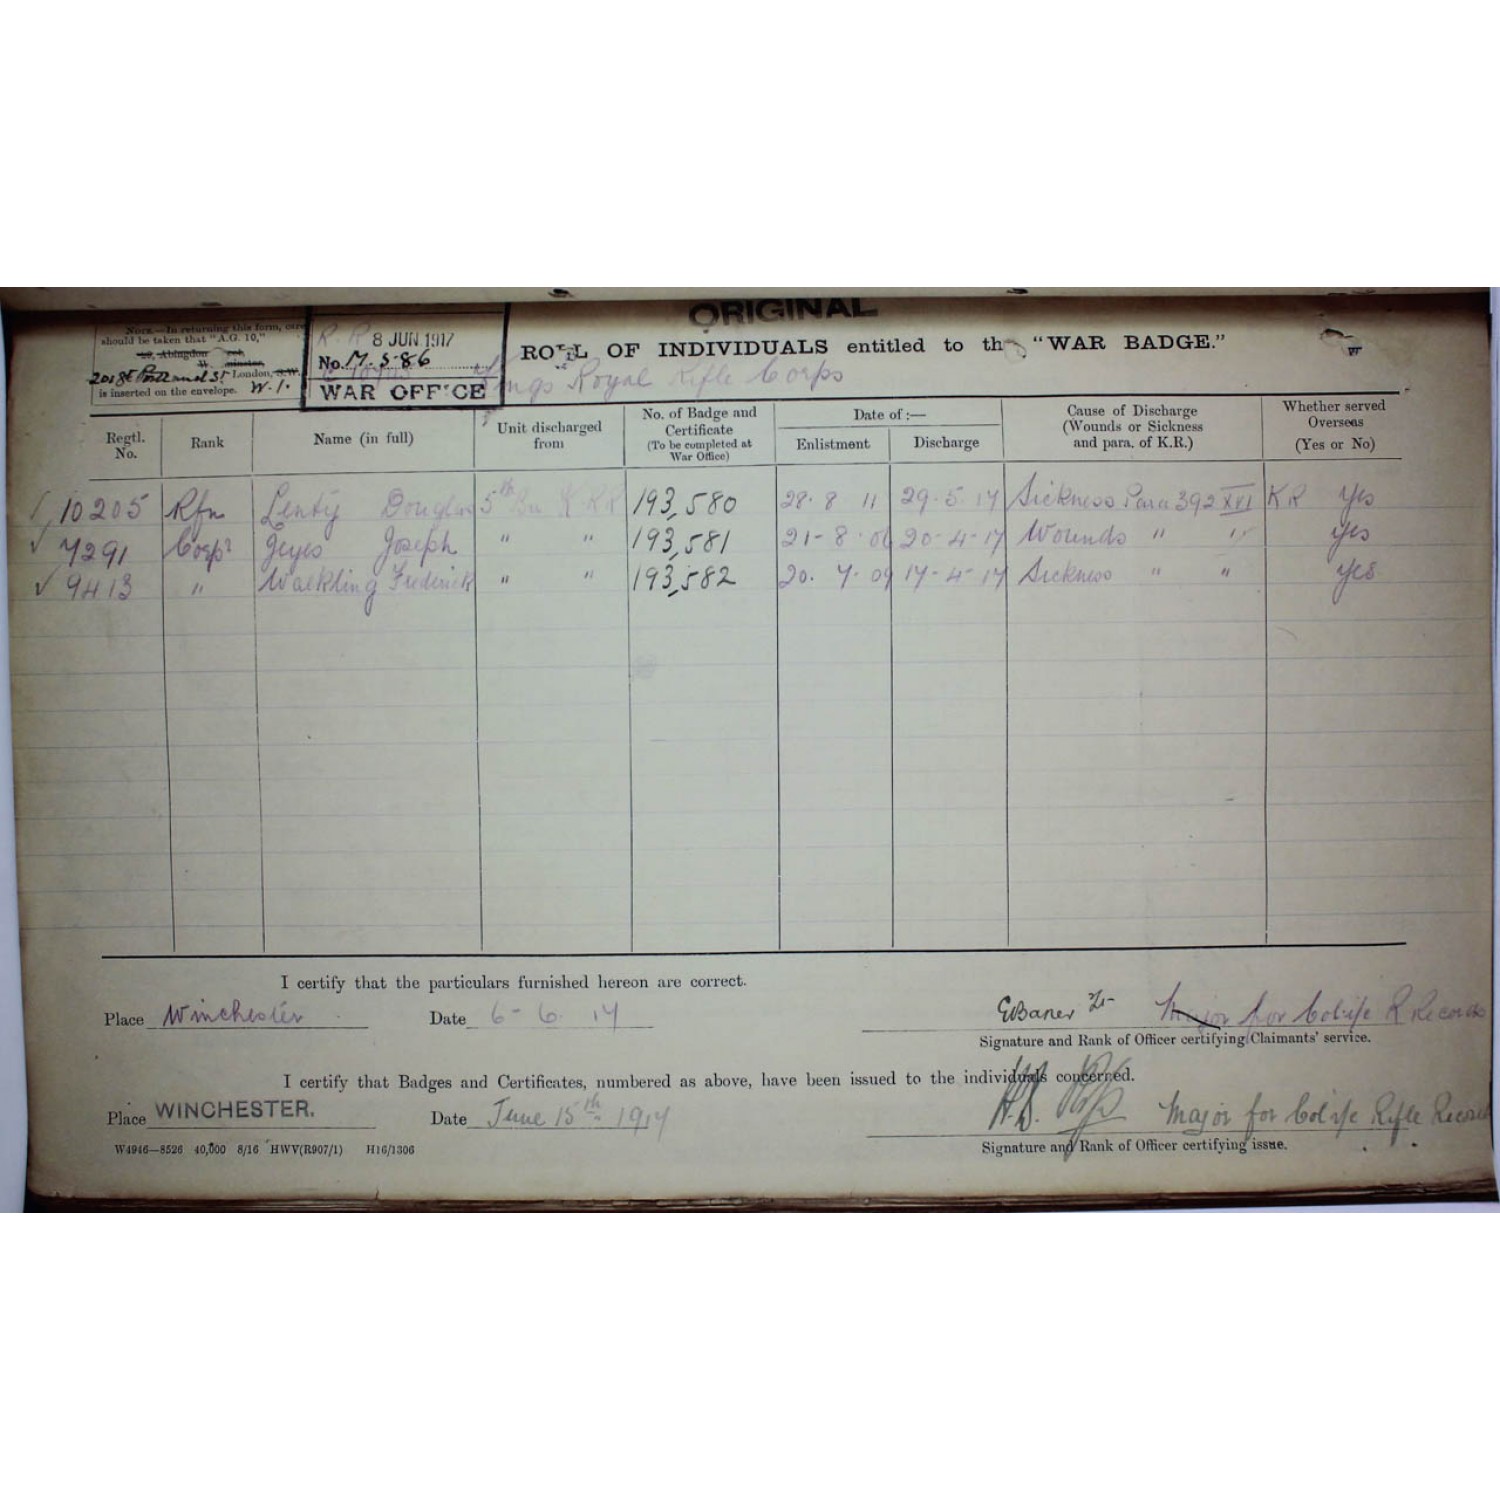 ORIGINAL
NOTE.—In returning this form, care
should be taken that "A.G. 10,"
London, S.W.
W.1.
is inserted on the envelope.
8 JUN. 1917
No. M. S. 86
WAR OFFICE
ROLL OF INDIVIDUALS entitled to the "WAR BADGE."
Kings Royal Rifle Corps
Regtl. No. Rank Name (in full) Unit discharged from No. of Badge and Certificate (To be completed at War Office) Date of :— Enlistment Discharge Cause of Discharge (Wounds or Sickness and para. of K.R.) Whether served Overseas (Yes or No)
10205 Rfn Lenty Douglas 5th Bn K.R.R 193,580 28. 8 11 29-5.17 Sickness Para 392 XVI KR Yes
7291 Corpl Jeyes Joseph " " 193,581 21-8.06 20-4-17 Wounds " " yes
9413 " Walkling Frederick " " 193,582 20. 7.09 17-4-17 Sickness " " yes
I certify that the particulars furnished hereon are correct.
Place Winchester Date 6-6.17 Major for Col i/c R Records
Signature and Rank of Officer certifying Claimants' service.
I certify that Badges and Certificates, numbered as above, have been issued to the individuals concerned.
Place WINCHESTER. Date June 15th 1917 Major for Col i/c Rifle Records
Signature and Rank of Officer certifying issue.
W4946—8526 40,000 8/16 HWV(R907/1) H16/1306